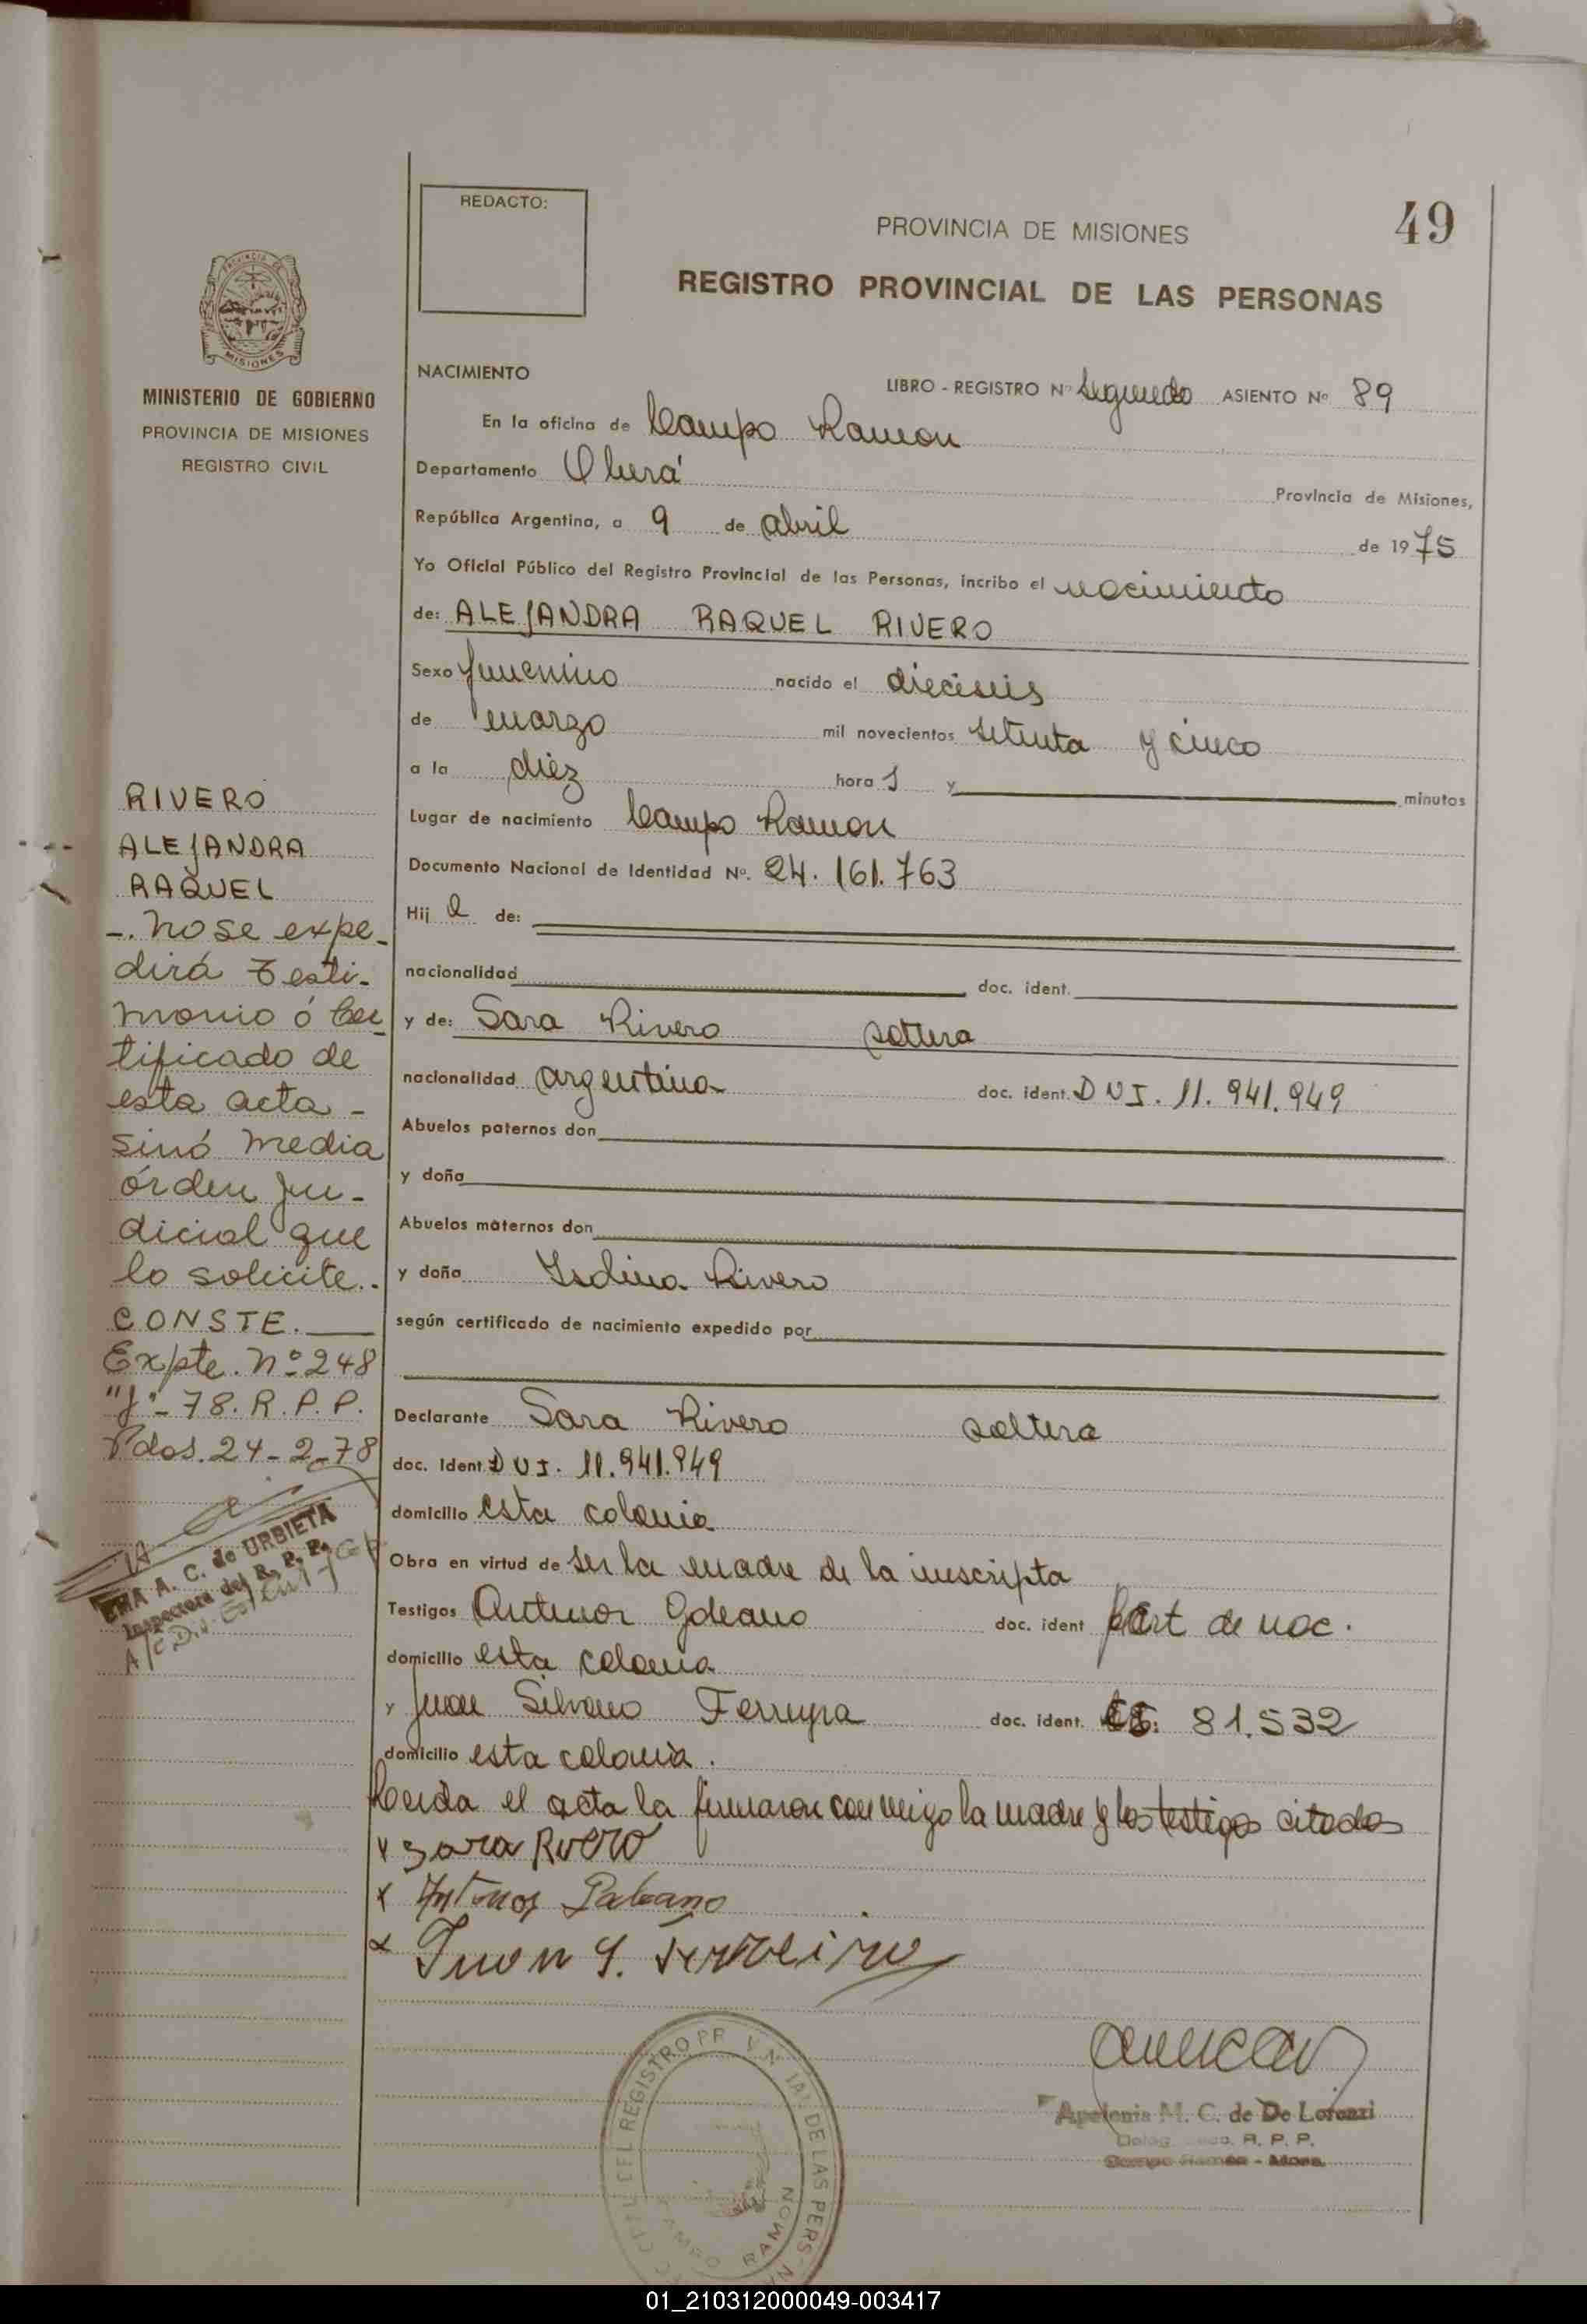 REDACTO:
PROVINCIA DE MISIONES
49
REGISTRO PROVINCIAL DE LAS PERSONAS
PROVINCIA DE
MISIONES
MINISTERIO DE GOBIERNO
PROVINCIA DE MISIONES
REGISTRO CIVIL
NACIMIENTO
LIBRO - REGISTRO Nº Segundo ASIENTO Nº 89
En la oficina de Campo Ramon
Departamento Oberá Provincia de Misiones,
República Argentina, a 9 de abril de 1975
Yo Oficial Público del Registro Provincial de las Personas, incribo el nacimiento
de: ALEJANDRA RAQUEL RIVERO
Sexo femenino nacido el dieciseis
de marzo mil novecientos setenta y cinco
a la diez hora s y minutos
Lugar de nacimiento Campo Ramon
Documento Nacional de Identidad Nº. 24.161.763
Hij a de:
nacionalidad doc. ident.
y de: Sara Rivero soltera
nacionalidad argentina doc. ident. DNI. 11.941.949
Abuelos paternos don
y doña
Abuelos maternos don
y doña Isolina Rivero
según certificado de nacimiento expedido por
Declarante Sara Rivero soltera
doc. Ident DNI. 11.941.949
domicilio esta colonia
Obra en virtud de ser la madre de la inscripta
Testigos Antenor Goleano doc. ident part de nac.
domicilio esta colonia
y Juan Silvano Ferreyra doc. ident. 81.532
domicilio esta colonia.
Leida el acta la firmaron conmigo la madre y los testigos citados
x Sara Rivero
x Antenor Galeano
x Juan S.
RIVERO
ALEJANDRA
RAQUEL
-. No se expe-
dirá Testi-
monio ó Cer-
tificado de
esta acta -
sinó media
órden Ju-
dicial que
lo solicite..
CONSTE.
Expte. Nº 248
"J"- 78. R. P. P.
Pdas. 24-2-78
A. C. de URBIETA
Inspectora del R. P. P.
Apolonia M. C. de De Lorenzi
R. P. P.
Campo Ramón - Mnes.
DEL REGISTRO PROVINCIAL DE LAS PERS
CAMPO RAMON
01_210312000049-003417